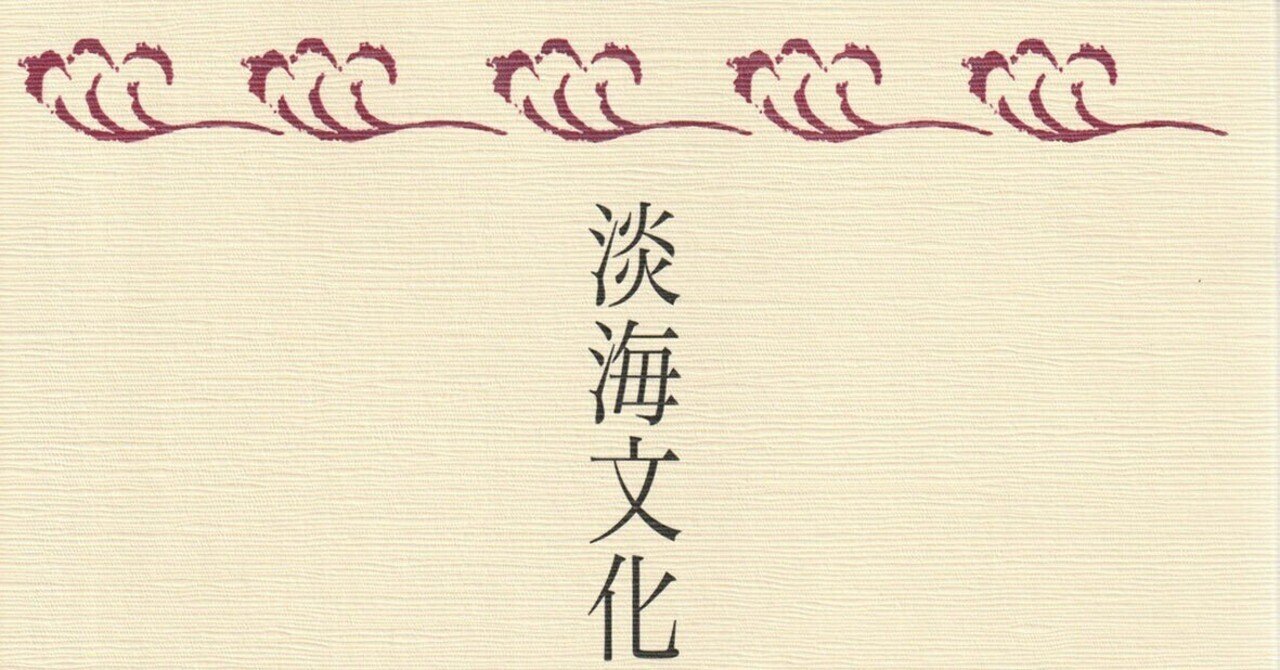 淡海文化